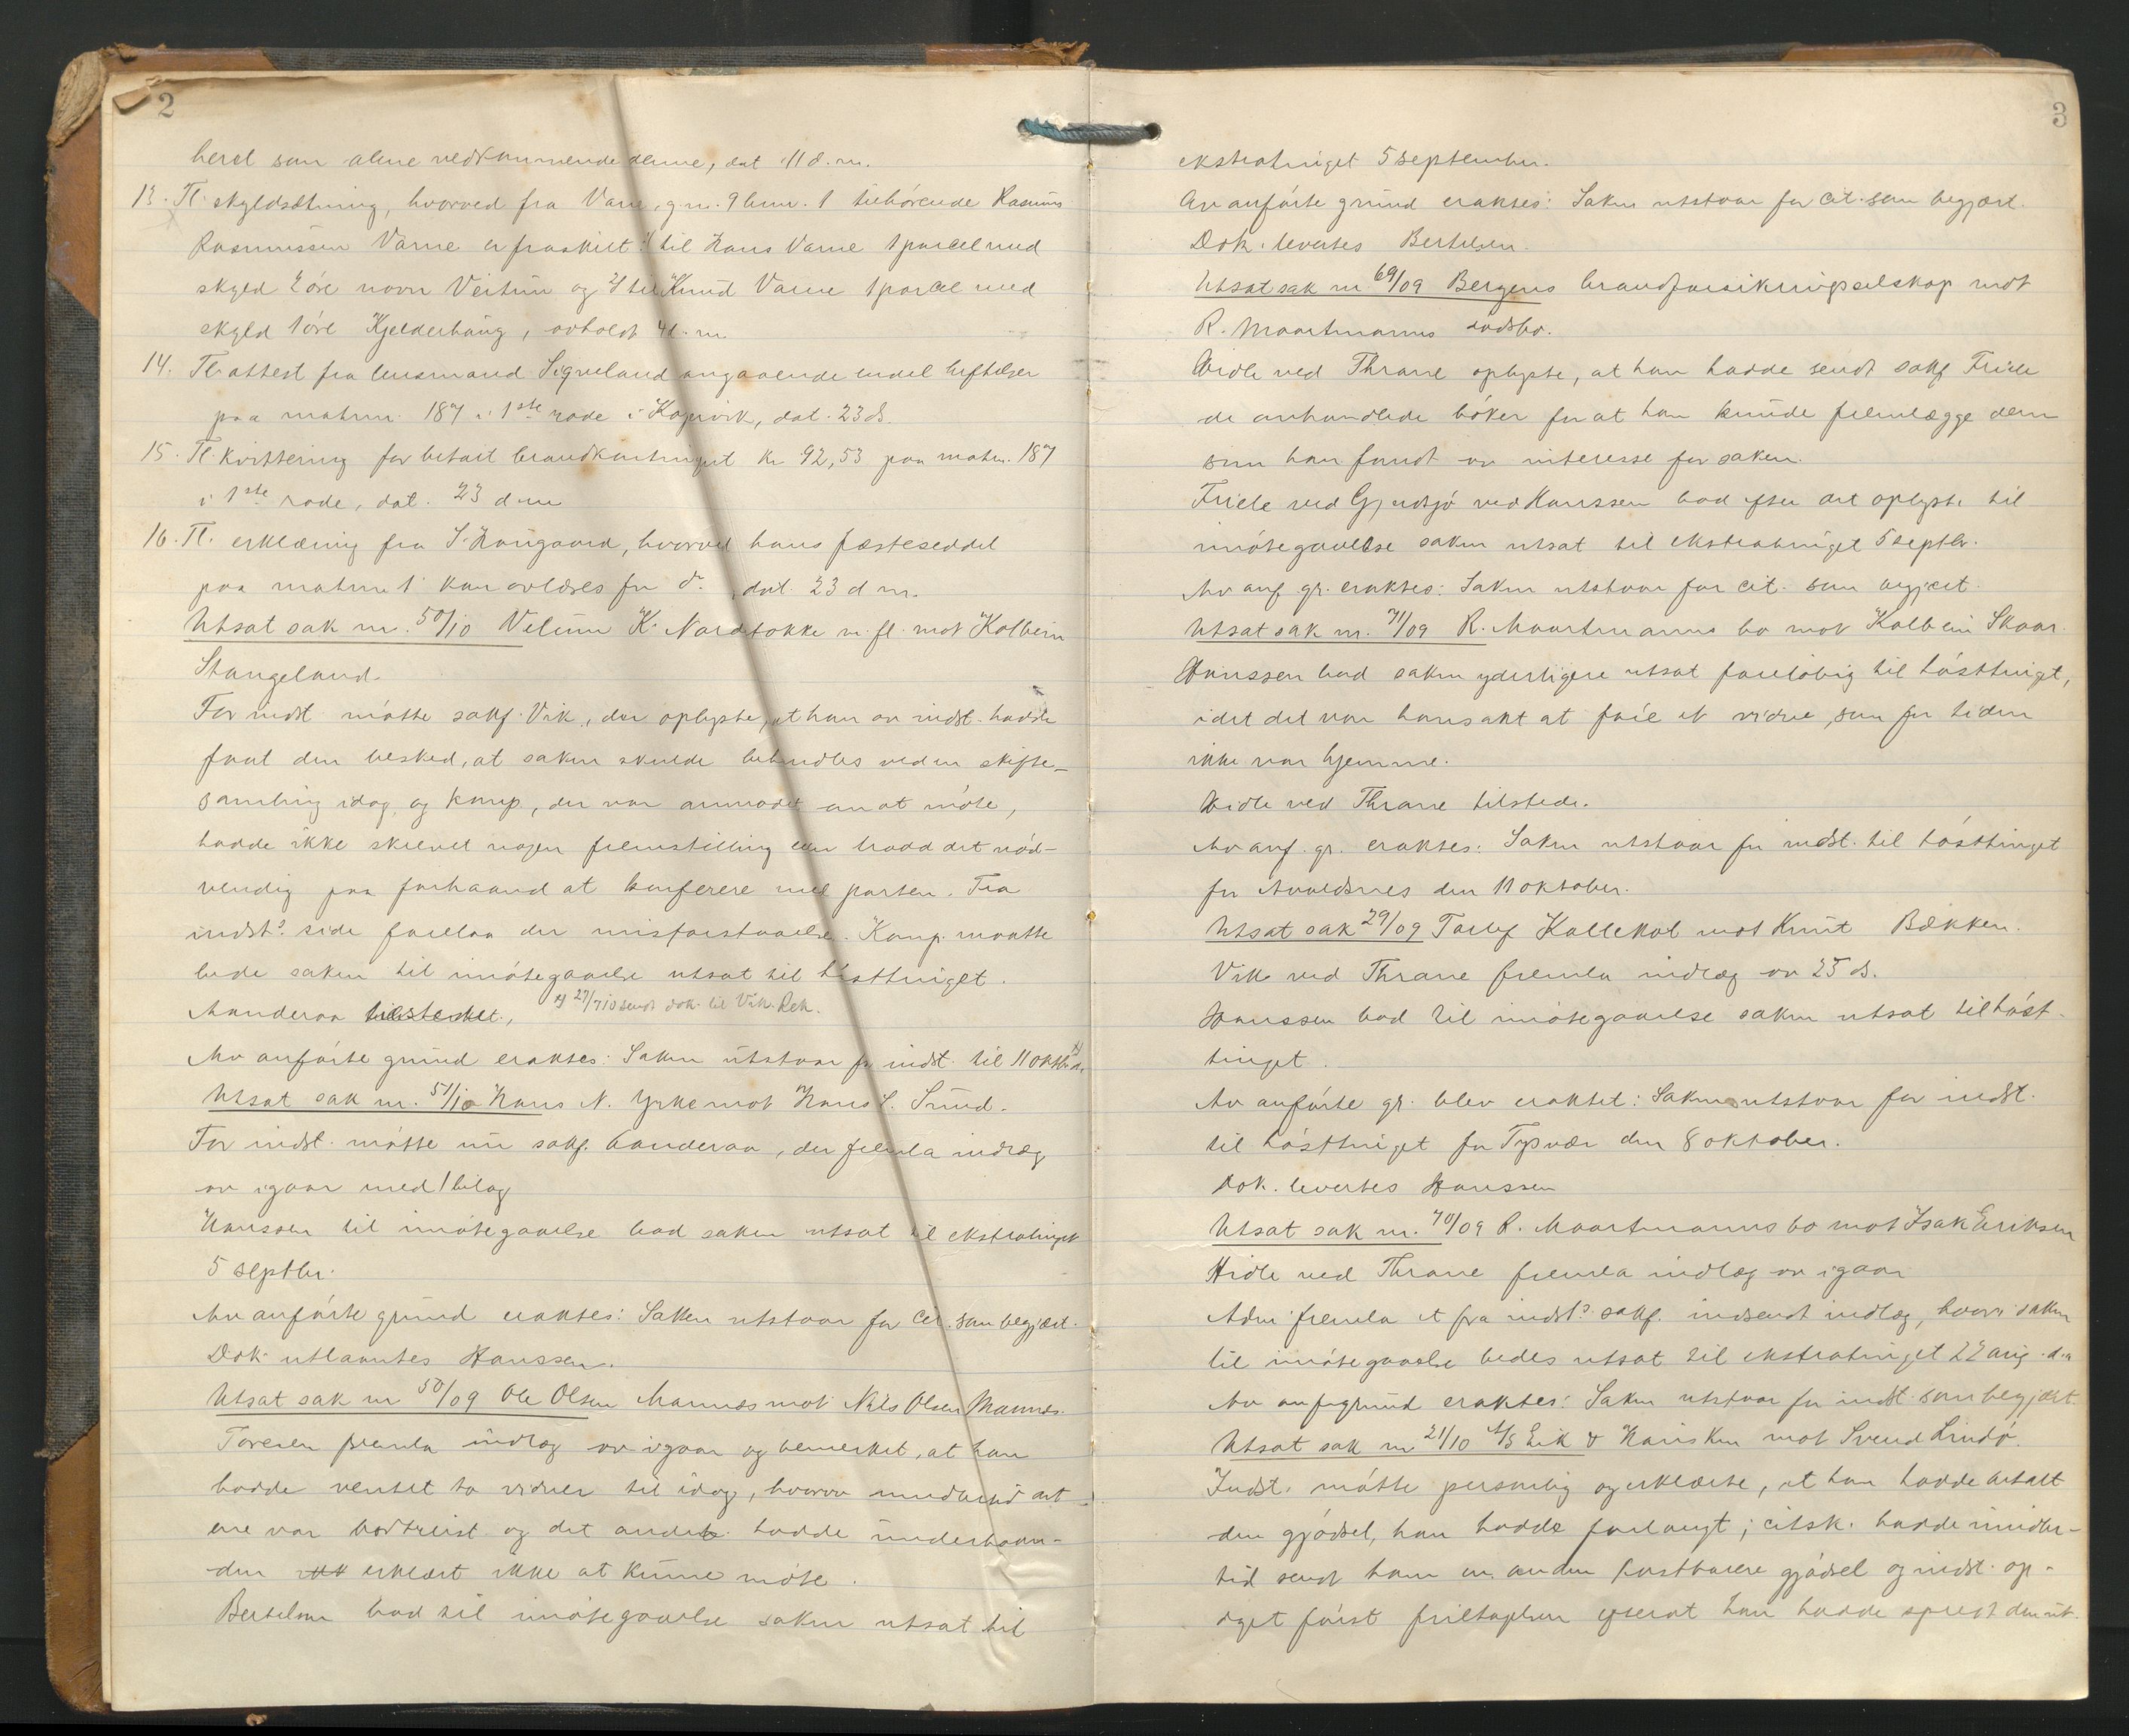 2
hered som alene vedkommende denne, dat 11 d. m.
13. Tl. skyldsætning, hvorved fra Varne, g. nr. 9 bnr. 1 tilhörende Rasmus
Rasmussen Varne er fraskilt: til Hans Varne 1 parcel med
skyld 2 öre navn Veitun og til Knud Varne 1 parcel med
skyld 1 öre Kjelderhaug, avholdt 4 d. m.
14. Tl. attest fra lensmand Sigveland angaaende endel heftelser
paa matrnr. 187 i 1ste rode i Kopervik, dat. 23 ds.
15. Tl. kvittering for betalt brandkontingent kr 92,53 paa matnr. 187
i 1ste rode, dat. 23 d m
16. Tl. erklæring fra S. Haugaard, hvorved hans fæsteseddel
paa matrnr 1 kan avlæses for do, dat. 23 d m.
Utsat sak nr. 50/10 Velum K. Nordstokke m. fl. mot Kolbein
Stangeland.
For indst. mötte sakf. Vik, der oplyste, at han av indst. hadde
faat den besked, at saken skulde behandles ved en skifte-
samling idag, og komp., der var anmodet om at möte,
hadde ikke skrevet nogen fremstilling eller trodd det nöd-
vendig paa forhaand at konferere med parten. Fra
indsts side forelaa der misforstaaelse. Komp. maatte
bede saken til imötegaaelse utsat til hösttinget.
Aanderaa tilstedet.,
x) 27/7 10 sendt dok. til Vik. Rek.
Av anförte grund eraktes: Saken utstaar for indst. til 11 oktbr. x)
Utsat sak nr. 51/10 Hans N. Yrke mot Hans L. Sund.
For indst. mötte nu sakf. Aanderaa, der fremla indlæg
av igaar med 1 bilag
Hanssen til imötegaaelse bad saken utsat til ekstratinget
5 septbr.
Av anförte grund eraktes: Saken utstaar for cit. som begjært.
Dok. utlaantes Hanssen.
Utsat sak nr 50/09 Ole Olsen Mannes mot Nils Olsen Mannes.
Toresen fremla indlæg av igaar og bemerket, at han
hadde ventet to vidner til idag, hvorav imidlertid det
ene var bortreist og det andet hadde underhaan-
den erklært ikke at kunne möte.
Bertelsen bad til imötegaaelse saken utsat til
3
ekstratinget 5 september.
Av anförte grund eraktes: Saken utstaar for cit. som begjært.
Dok. levertes Bertelsen.
Utsat sak nr 69/09 Bergens brandforsikringsselskap mot
R. Maartmanns dödsbo.
Hidle ved Thrane oplyste, at han hadde sendt sakf Friele
de omhandlede böker for at han kunde fremlægge dem
som han fandt av interesse for saken.
Friele ved Gjerdsjö ved Hanssen bad efter det oplyste til
imötegaaelse saken utsat til ekstratinget 5 septbr.
Av anf. gr. eraktes: Saken utstaar for cit. som begjært.
Utsat sak nr. 71/09 R. Maartmanns bo mot Kolbein Skaar.
Hanssen bad saken yderligere utsat forelöbig til hösttinget,
idet det var hans akt at före et vidne, som for tiden
ikke var hjemme.
Hidle ved Thrane tilstede.
Av anf. gr. eraktes: Saken utstaar for indst. til hösttinget
for Avaldsnes den 11 oktober.
Utsat sak 29/09 Torleif Kallekot mot Knut Bækken.
Vik ved Thrane fremla indlæg av 25 ds.
Hanssen bad til imötegaaelse saken utsat til höst-
tinget.
Av anförte gr. blev eraktet: Saken utstaar for indst.
til hösttinget for Tysvær den 8 oktober.
Dok. levertes Hanssen
Utsat sak nr. 70/09 R. Maartmanns bo mot Isak Eriksen
Hidle ved Thrane fremla indlæg av igaar
Adm. fremla et fra indsts sakf. indsendt indlæg, hvori saken
til imötegaaelse bedes utsat til ekstratinget 22 aug. d. a
Av anf. grund eraktes: Saken utstaar for indst. som begjært.
Utsat sak nr 21/10 A/S Eik & Hausken mot Svend Lindö.
Indst. mötte personlig og erklærte, at han hadde betalt
den gjödsel, han hadde forlangt; citsk. hadde imidler-
tid sendt ham en anden kostbarere gjödsel og indst. op-
dget först feiltagelsen efterat han hadde spredt den ut.